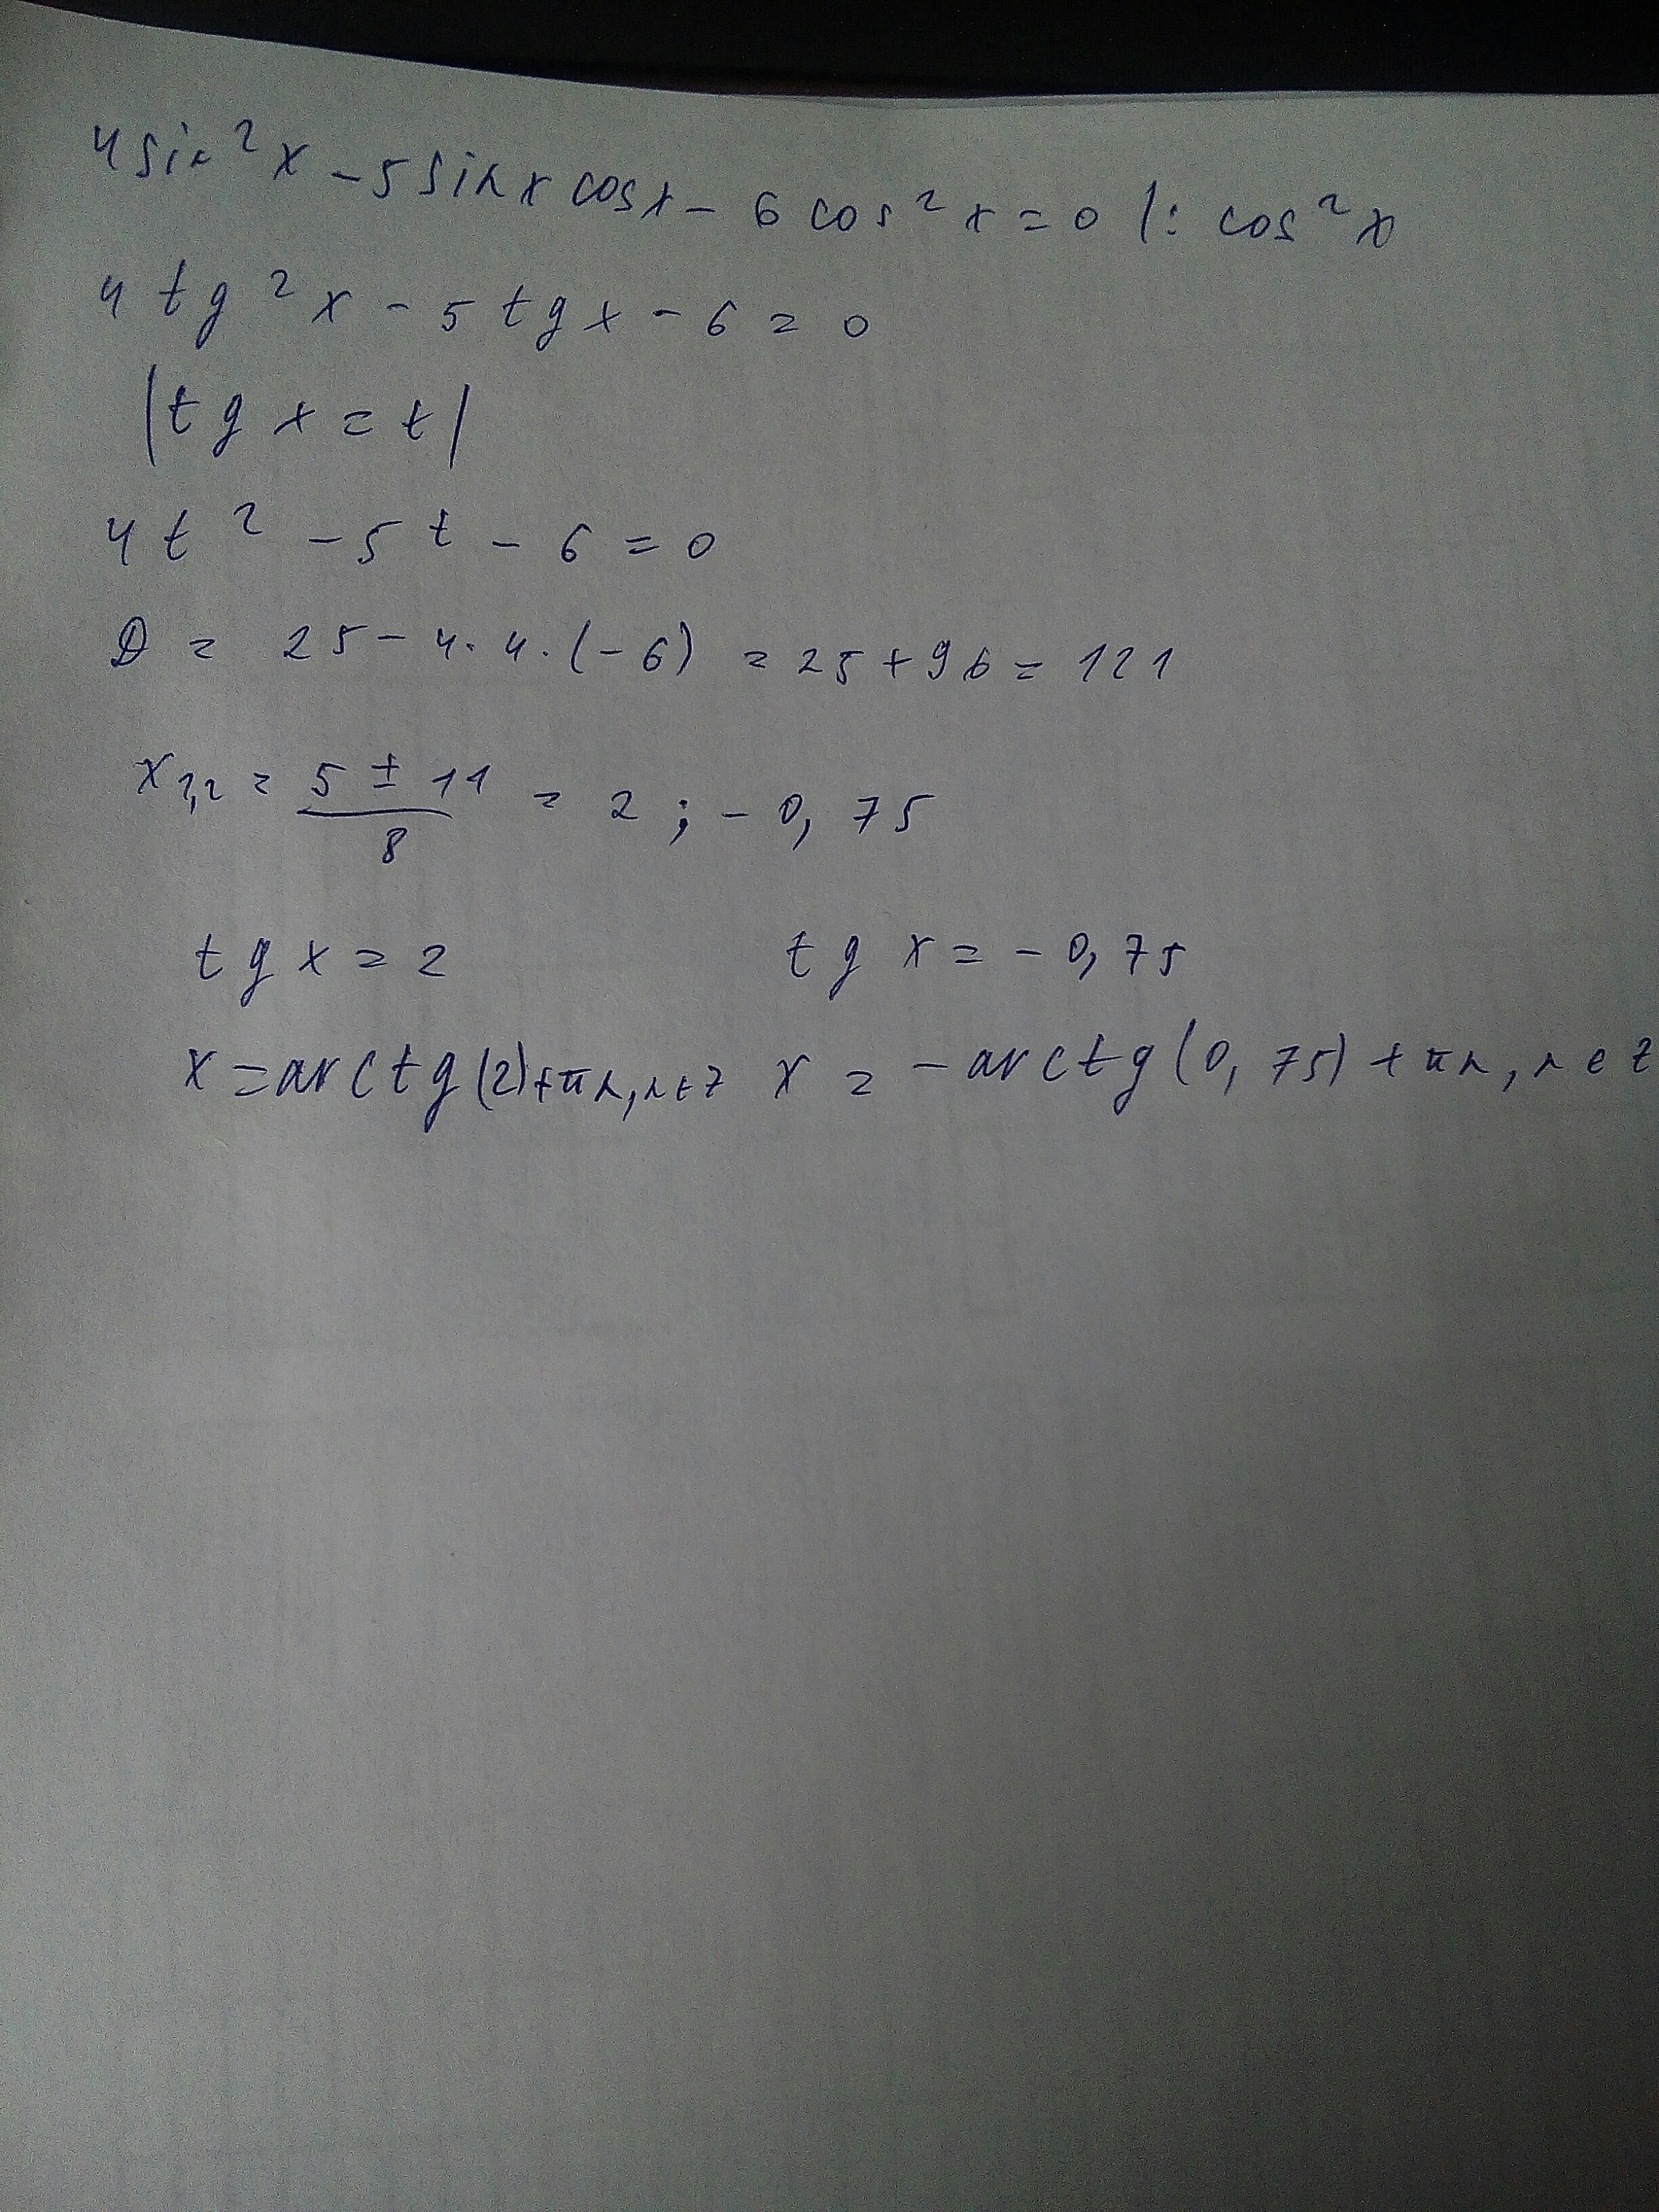 4 sin² x - 5 sin x cos x - 6 cos² x = 0 |: cos² x
4 tg² x - 5 tg x - 6 = 0
|tg x = t|
4t² - 5t - 6 = 0
D = 25 - 4·4·(-6) = 25 + 96 = 121
x₁,₂ = (5 ± 11)/8 = 2; -0,75
tg x = 2 tg x = -0,75
x = arctg(2) + πn, n ∈ Z x = -arctg(0,75) + πn, n ∈ Z